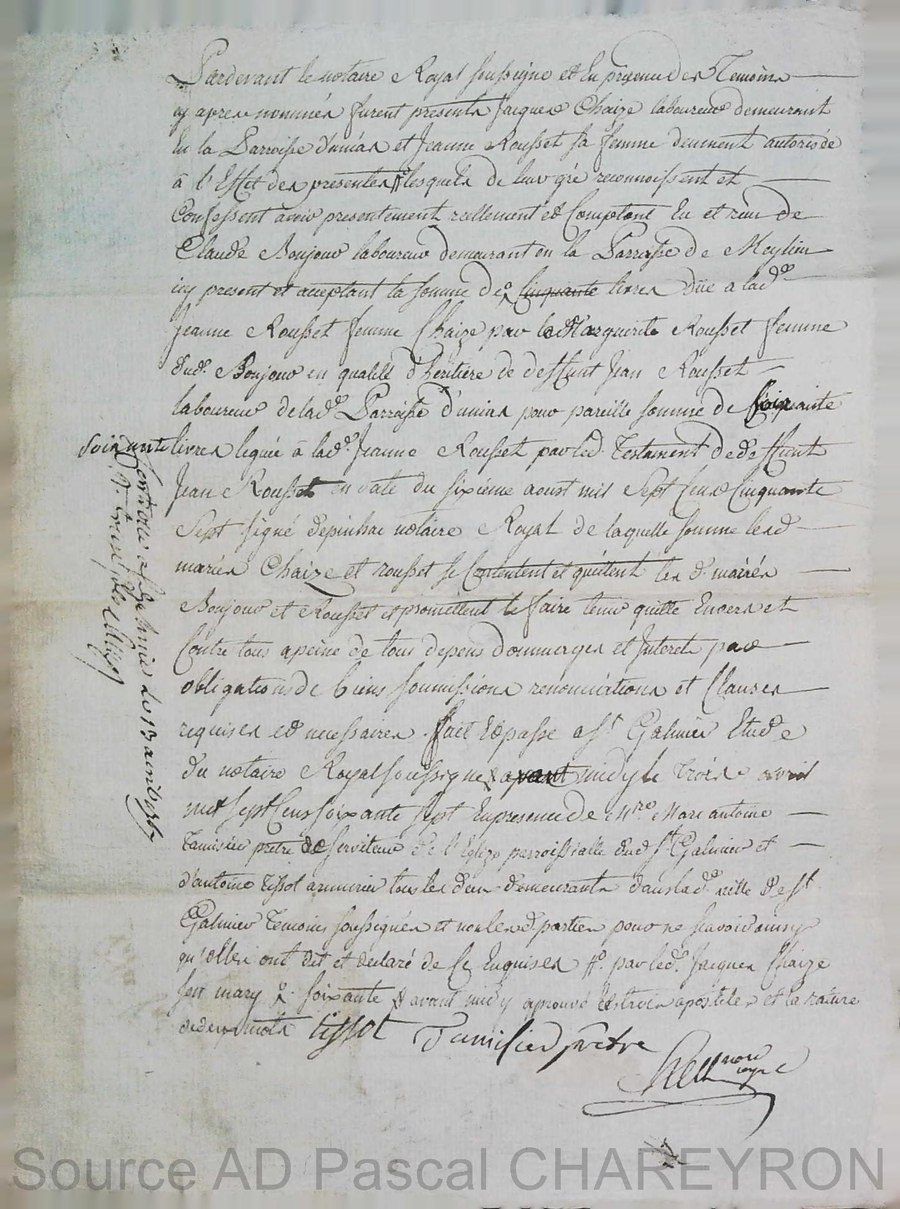 Pardevant le notaire Royal soussigné et En presence des Temoins
cy apres nommés furent presents Jacques Chaize laboureur demeurant
En la Parroisse d'aniar et Jeanne Rousset sa femme deument autorisée
à l'Effet des presentes lesquels de leur gré reconnoissent et
Confessent avoir presentement reellement et Comptant Eu et reçu de
Claude Bonjour laboureur demeurant en la Parroisse de Meylieu
icy present et acceptant la somme de cinquante livres düe a lad.e
Jeanne Rousset femme Chaize par la Marguerite Rousset femme
dud. Bonjour en qualité d'heritière de deffunt Jean Rousset
laboureur de lad.e Parroisse d'aniar pour pareille somme de
soixante livres leguée à lad.e Jeanne Rousset par led. Testament de deffunt
Jean Rousset en date du sixième aoust mil Sept Cens Cinquante
Sept signé depinhac notaire Royal de laquelle somme lesd
mariés Chaize et rousset se Contentent et quittent les d. mariés
Bonjour et Rousset et promettent le faire tenir quitte Envers et
Contre tous a peine de tous depens dommages et Interets par
obligations de biens soumissions renonciations et Clauses
requises et necessaires. fait et passé a St Galmier Etude
du notaire Royal soussigné avant midy le Trois avril
mil sept Cens soixante sept En presence de M.re Marc antoine
Tamisier prêtre de l'Eglize parroissialle dud St Galmier et
d'antoine Tissot armurier tous les deux demeurants dans lad.e ville de St
Galmier Temoins soussignés et non lesd. parties pour ne sçavoir
qu'elles ont dit et declaré de ce Enquises par led. Jacques Chaize
son mary soixante avant midy aprouvé trois apostilles et la rature
de deux mots Tissot Tamisier prêtre
no.re
royal
Controllé
Source AD Pascal CHAREYRON